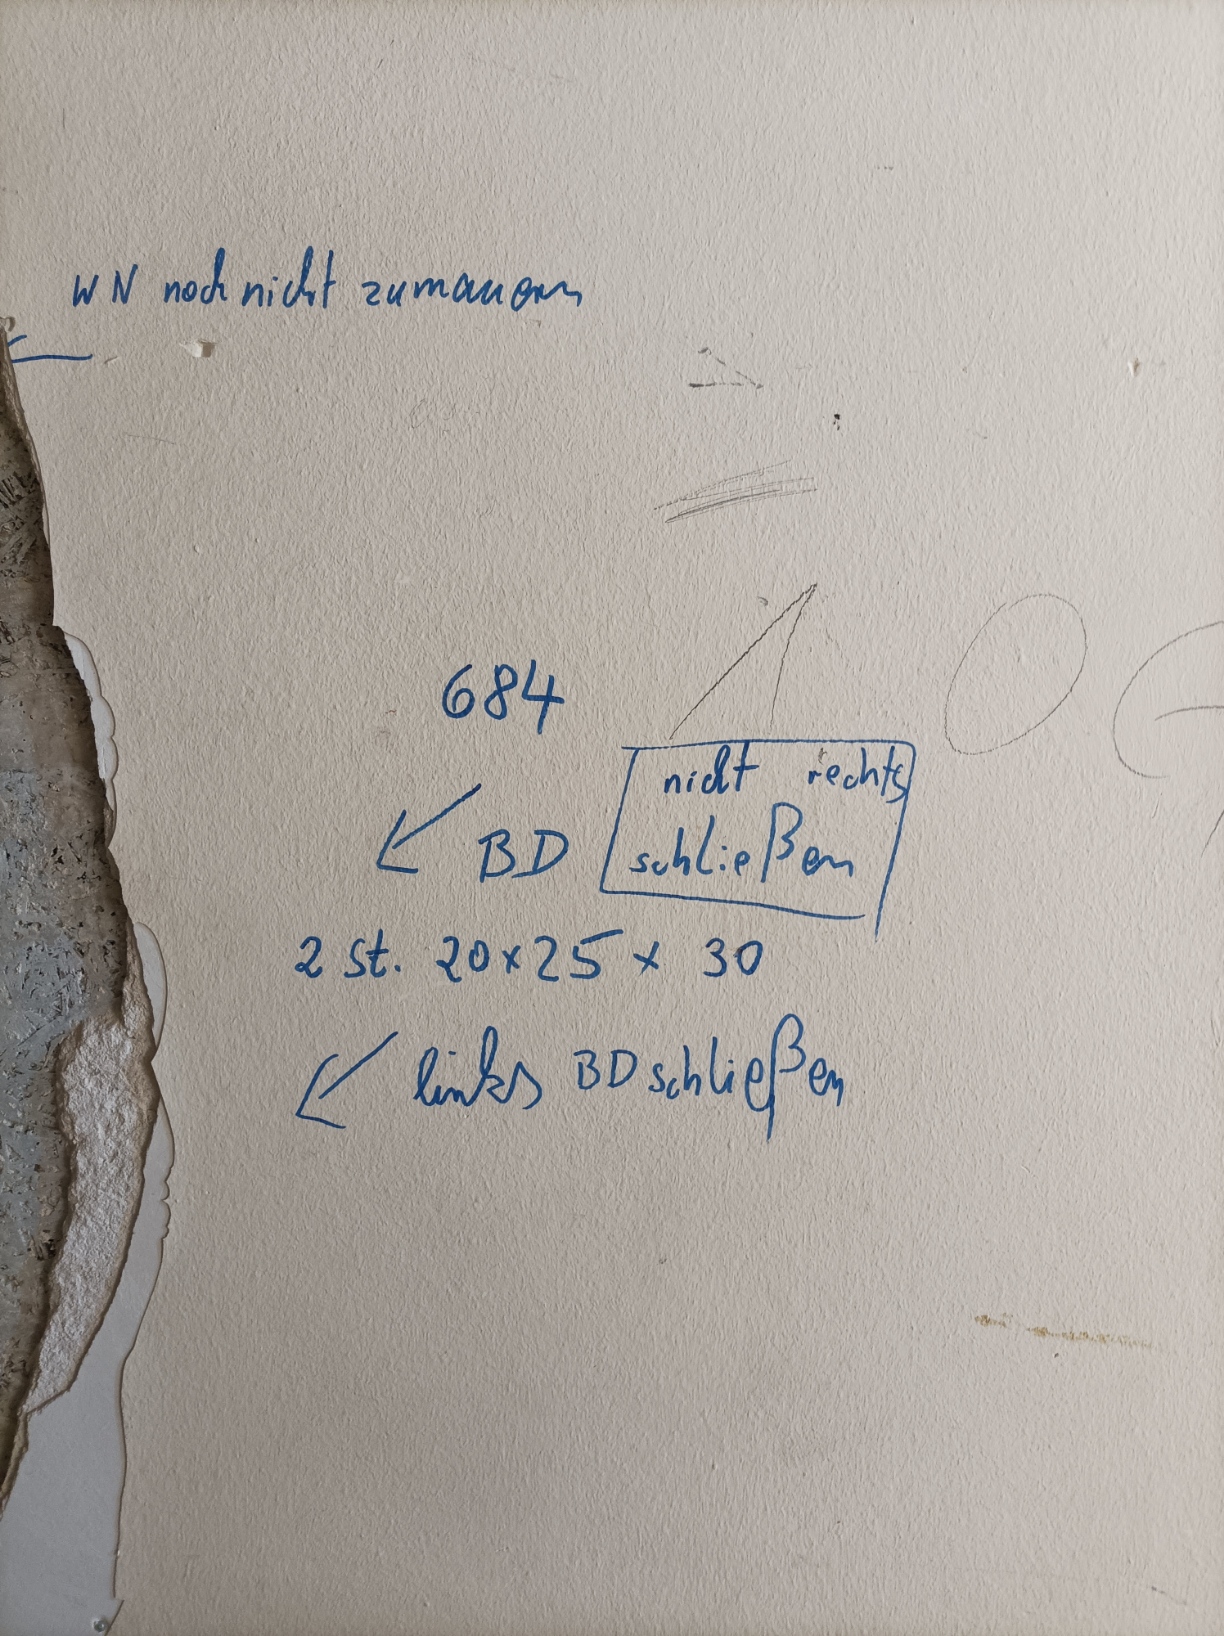 WN noch nicht zumauern
684
nicht rechts
BD schließen
2 St. 20x25x 30
links BD schließen
10